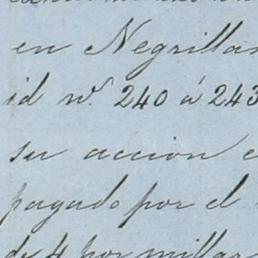 en Negrillas
id nº. 240 á 243
su accion
pagado por el
de 4 por millar